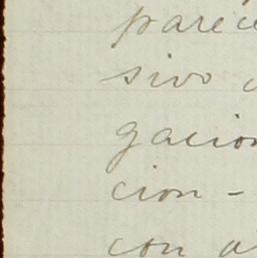 parec
sivo
gacion
cion -
con a